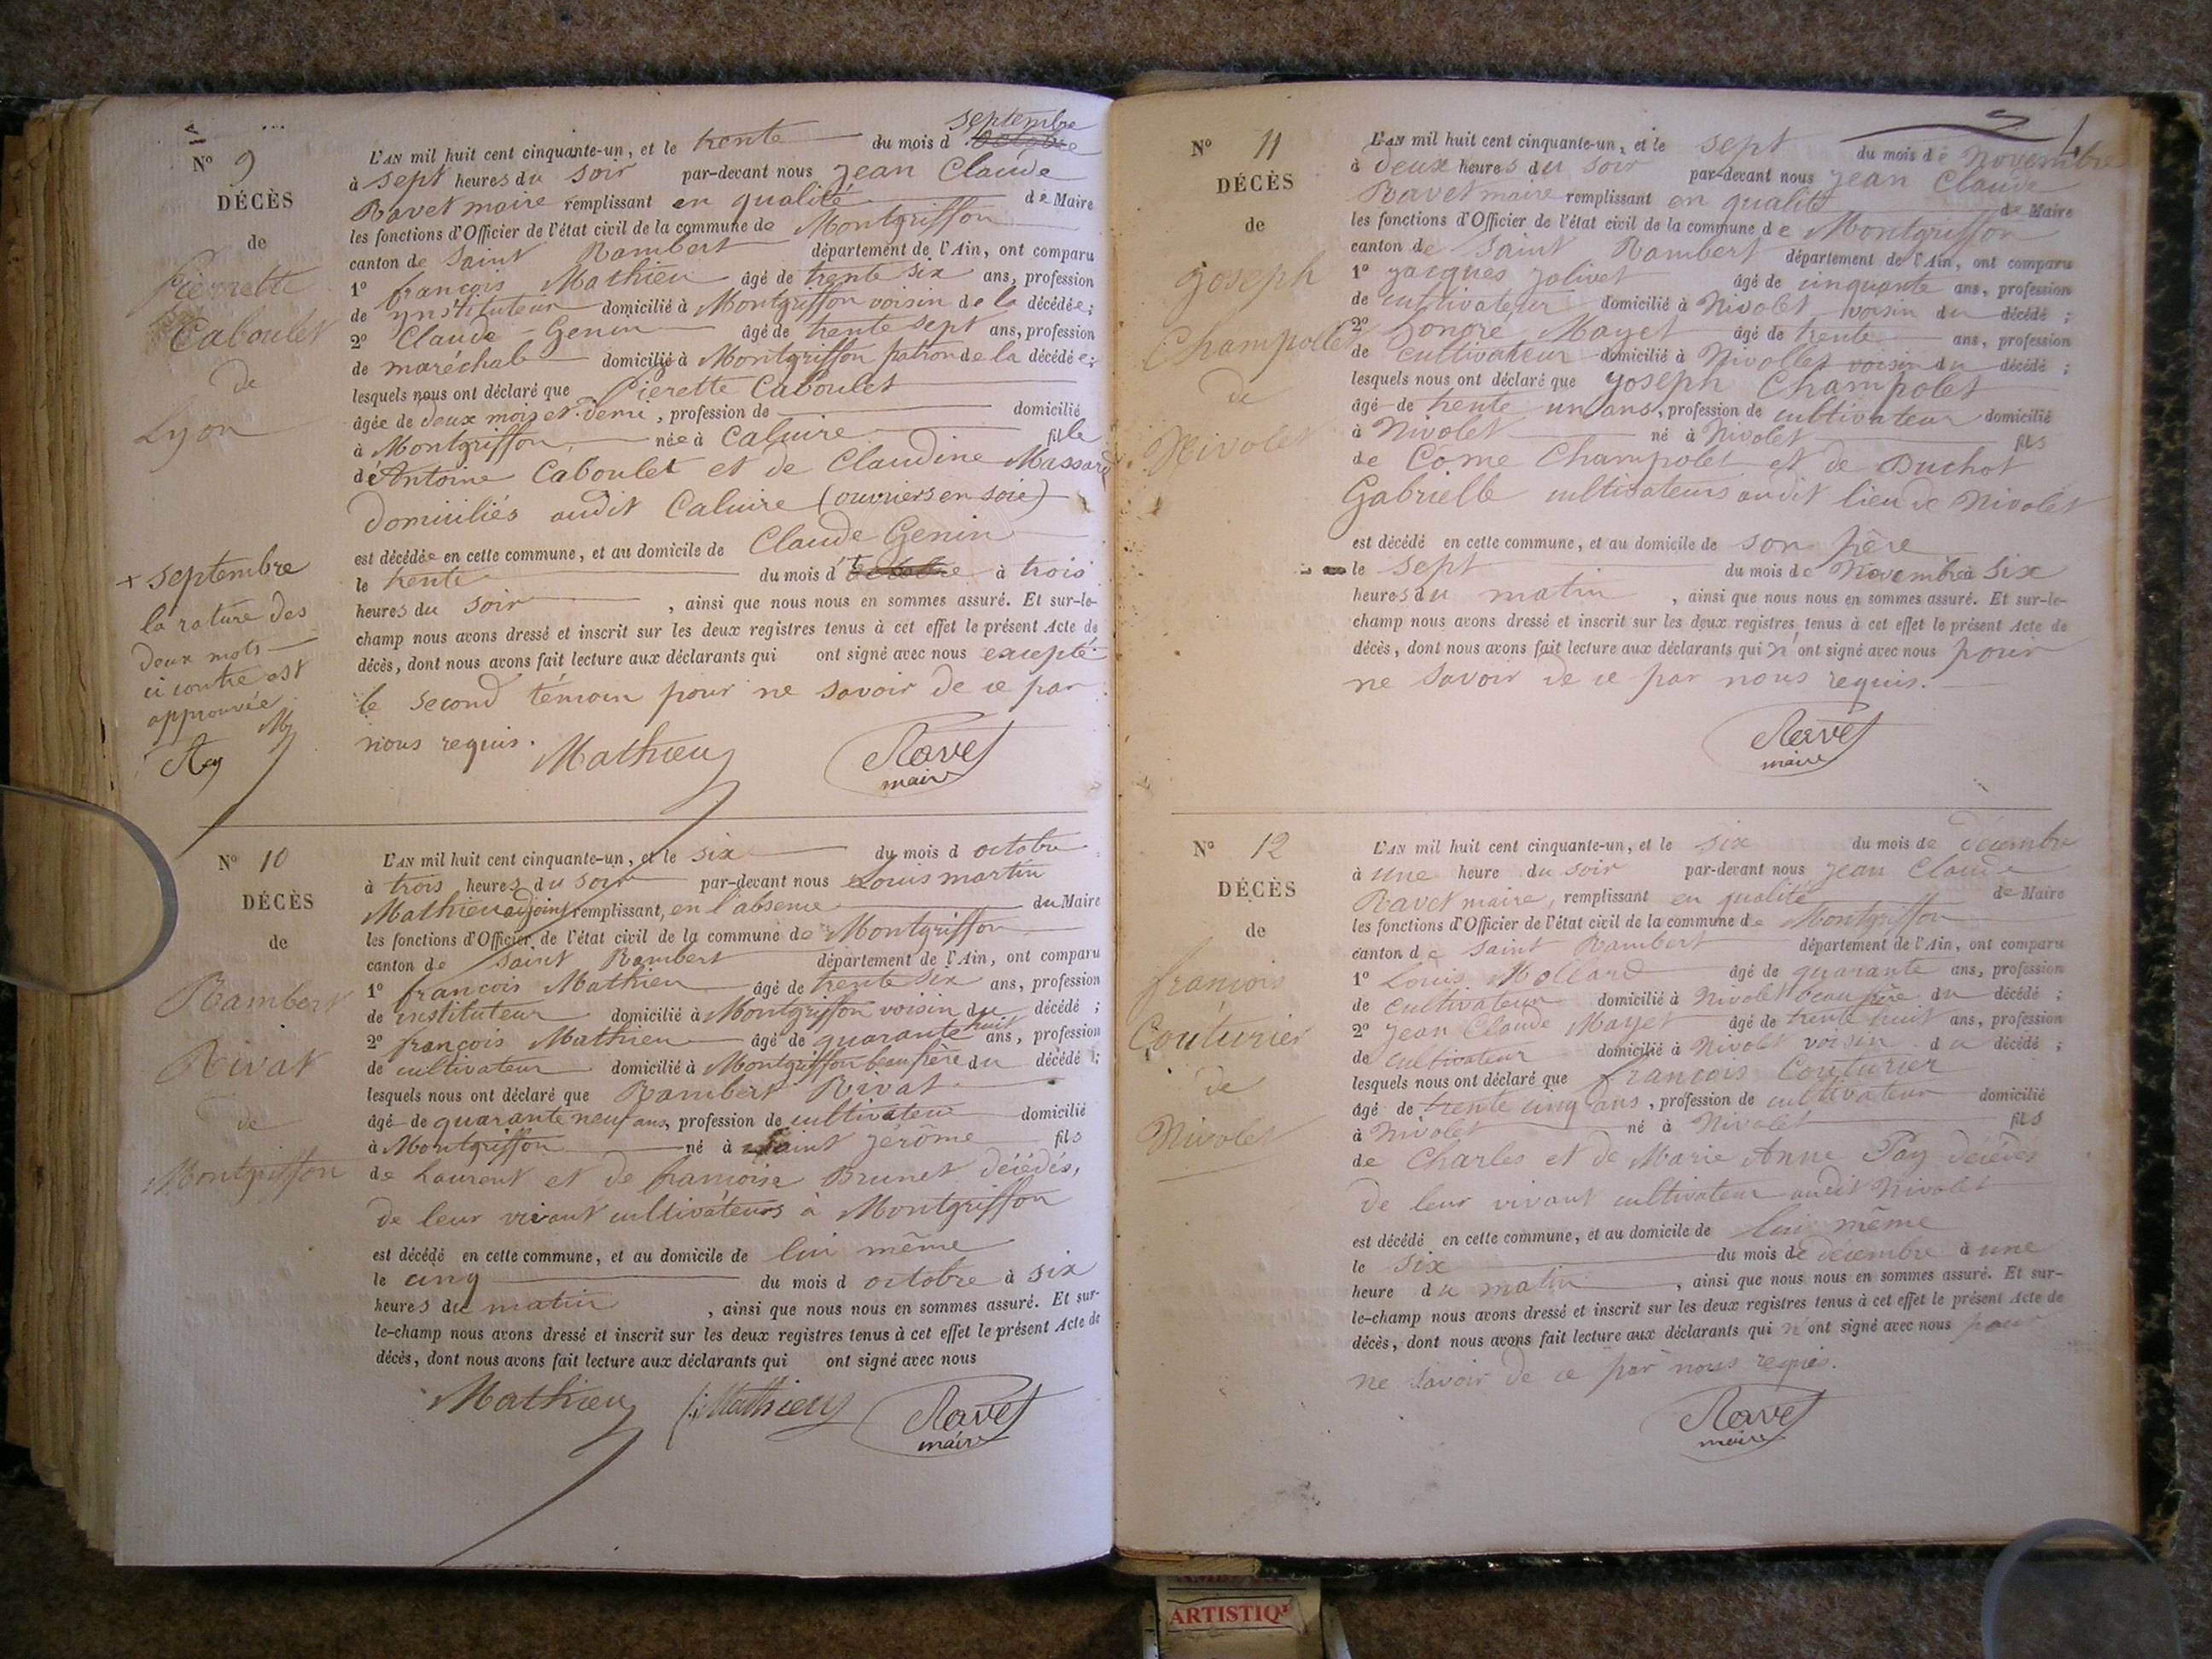 N° 9
DÉCÈS
de
Pierrette
Caboulet
de
Lyon
+ septembre
la rature des
deux mots
ci contre est
approuvée
septembre
L'AN mil huit cent cinquante-un, et le trente du mois d octobre
à sept heures du soir par-devant nous Jean Claude
Ravet maire remplissant en qualité de Maire
les fonctions d'Officier de l'état civil de la commune de Montgriffon
canton de Saint Rambert département de l'Ain, ont comparu
1° françois Mathieu âgé de trente six ans, profession
de ynstituteur domicilié à Montgriffon voisin de la décédée ;
2° Claude Genin âgé de trente sept ans, profession
de maréchal domicilié à Montgriffon patron de la décédée ;
lesquels nous ont déclaré que Pierette Caboulet
âgée de deux mois et demi, profession de domicilié
à Montgriffon née à Caluire fille
de Antoine Caboulet et de Claudine Massard
domiciliés audit Caluire (ouvriers en soie)
est décédée en cette commune, et au domicile de Claude Genin
le trente du mois d octobre à trois
heures du soir, ainsi que nous nous en sommes assuré. Et sur-le-
champ nous avons dressé et inscrit sur les deux registres tenus à cet effet le présent Acte de
décès, dont nous avons fait lecture aux déclarants qui ont signé avec nous excepté
le second témoin pour ne savoir de ce par
nous requis.
Mathieu Ravet
maire
N° 10
DÉCÈS
de
Rambert
Rivat
de
Montgriffon
L'AN mil huit cent cinquante-un, et le six du mois d octobre
à trois heures du soir par-devant nous Louis martin
Mathieu adjoint remplissant, en l'absence du Maire
les fonctions d'Officier de l'état civil de la commune de Montgriffon
canton de Saint Rambert département de l'Ain, ont comparu
1° françois Mathieu âgé de trente six ans, profession
de instituteur domicilié à Montgriffon voisin du décédé ;
2° françois Mathieu âgé de quarante huit ans, profession
de cultivateur domicilié à Montgriffon beau frère du décédé ;
lesquels nous ont déclaré que Rambert Rivat
âgé de quarante neuf ans, profession de cultivateur domicilié
à Montgriffon né à Saint Jérôme fils
de Laurent et de francoise Brunet décédés,
de leur vivant cultivateurs à Montgriffon
est décédé en cette commune, et au domicile de lui même
le cinq du mois d octobre à six
heures du matin, ainsi que nous nous en sommes assuré. Et sur-
le-champ nous avons dressé et inscrit sur les deux registres tenus à cet effet le présent Acte de
décès, dont nous avons fait lecture aux déclarants qui ont signé avec nous
Mathieu f. Mathieu Ravet
maire
N° 11
DÉCÈS
de
Joseph
Champollet
de
Nivolet
L'AN mil huit cent cinquante-un, et le sept du mois de Novembre
à deux heures du soir par-devant nous Jean Claude
Ravet maire remplissant en qualité de Maire
les fonctions d'Officier de l'état civil de la commune de Montgriffon
canton de Saint Rambert département de l'Ain, ont comparu
1° Jacques Jolivet âgé de cinquante ans, profession
de cultivateur domicilié à Nivolet voisin du décédé ;
2° honoré Mayet âgé de trente ans, profession
de cultivateur domicilié à Nivollet voisin du décédé ;
lesquels nous ont déclaré que Joseph Champolet
âgé de trente un ans, profession de cultivateur domicilié
à Nivolet né à Nivolet fils
de Côme Champolet et de Duchot
Gabrielle cultivateurs audit lieu de Nivolet
est décédé en cette commune, et au domicile de son père
le sept du mois de Novembre à six
heures du matin, ainsi que nous nous en sommes assuré. Et sur-le-
champ nous avons dressé et inscrit sur les deux registres tenus à cet effet le présent Acte de
décès, dont nous avons fait lecture aux déclarants qui n'ont signé avec nous pour
ne savoir de ce par nous requis.
Ravet
maire
N° 12
DÉCÈS
de
françois
Couturier
de
Nivolet
L'AN mil huit cent cinquante-un, et le six du mois de décembre
à une heure du soir par-devant nous Jean Claude
Ravet maire, remplissant en qualité de Maire
les fonctions d'Officier de l'état civil de la commune de Montgriffon
canton de Saint Rambert département de l'Ain, ont comparu
1° Louis Mollard âgé de quarante ans, profession
de cultivateur domicilié à Nivolet beau frère du décédé ;
2° Jean Claude Mayet âgé de trente huit ans, profession
de cultivateur domicilié à Nivolet voisin du décédé ;
lesquels nous ont déclaré que françois Couturier
âgé de trente cinq ans, profession de cultivateur domicilié
à Nivolet né à Nivolet fils
de Charles et de Marie Anne Pay décédés
de leur vivant cultivateur audit Nivolet
est décédé en cette commune, et au domicile de lui même
le six du mois de décembre à une
heure du matin, ainsi que nous nous en sommes assuré. Et sur-
le-champ nous avons dressé et inscrit sur les deux registres tenus à cet effet le présent Acte de
décès, dont nous avons fait lecture aux déclarants qui n'ont signé avec nous pour
ne savoir de ce par nous requis.
Ravet
maire
ARTISTIQU